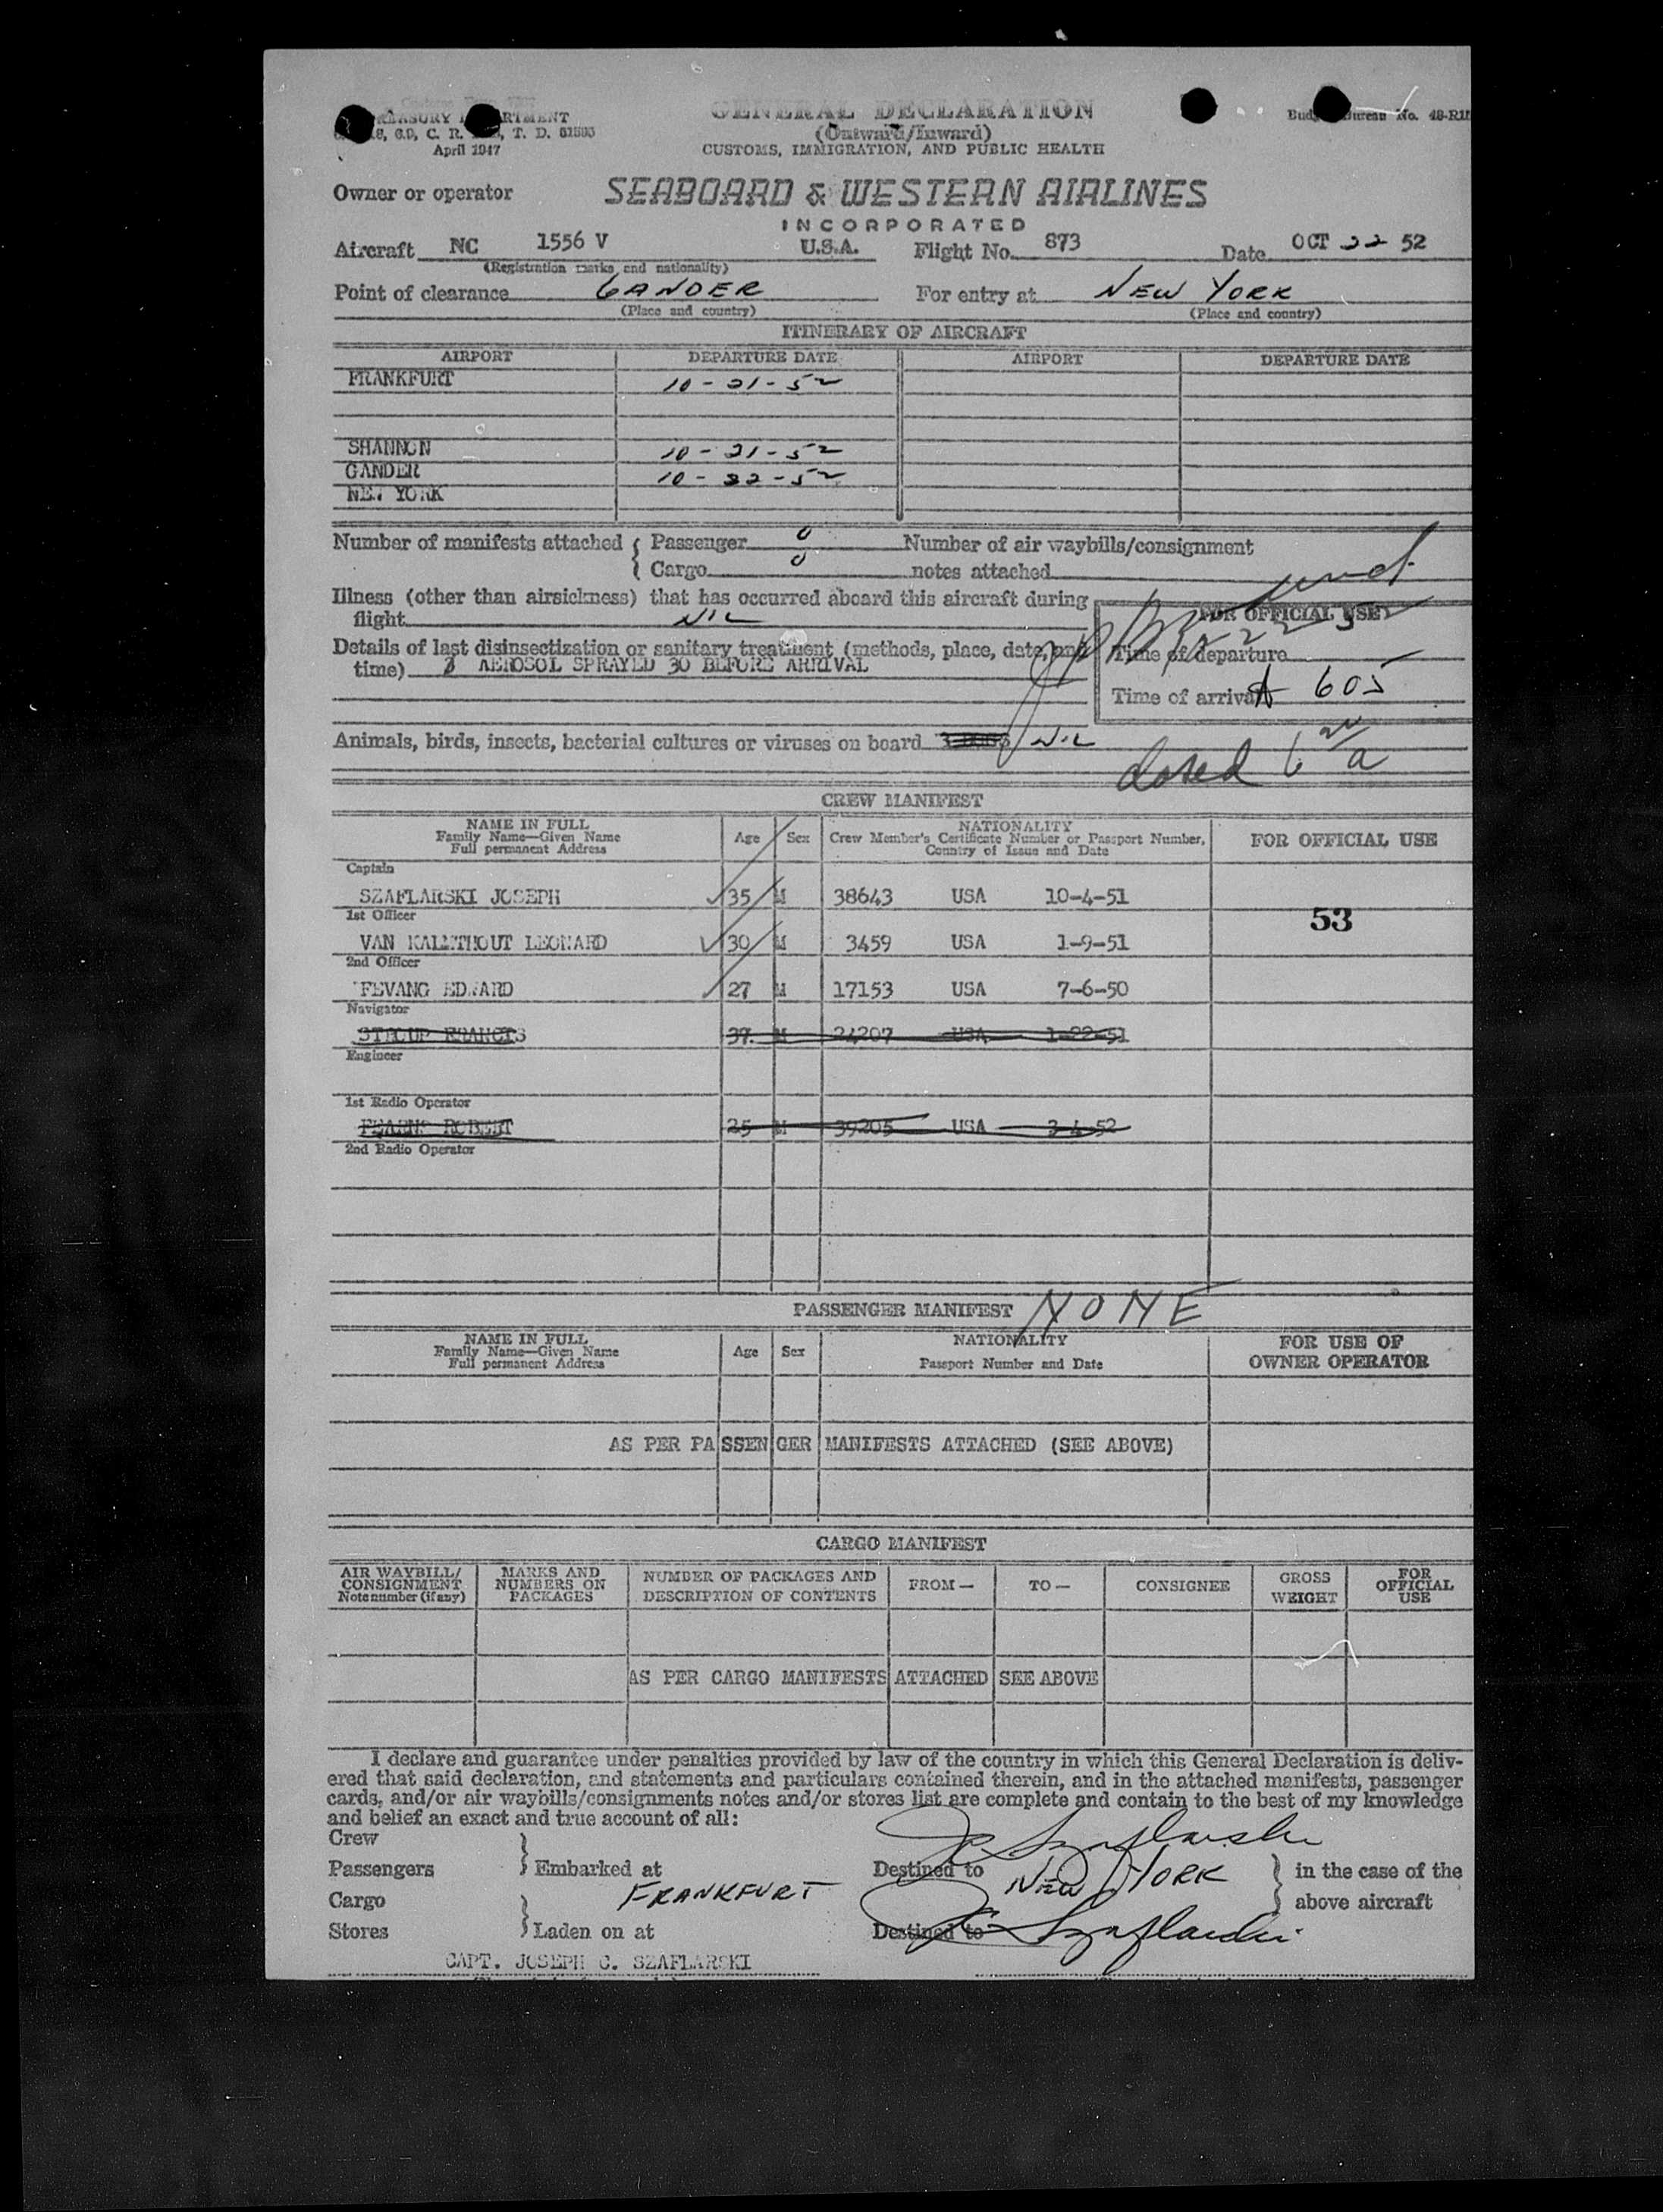 GENERAL DECLARATION
(Outward/Inward)
CUSTOMS, IMMIGRATION, AND PUBLIC HEALTH
T. D. 51593
April 1947
Bureau No. 48-R11
Owner or operator SEABOARD & WESTERN AIRLINES
INCORPORATED
Aircraft NC 1556 V U.S.A. Flight No. 873 Date OCT 22 52
(Registration marks and nationality)
Point of clearance GANDER For entry at NEW YORK
(Place and country) (Place and country)
ITINERARY OF AIRCRAFT
AIRPORT DEPARTURE DATE AIRPORT DEPARTURE DATE
FRANKFURT 10-21-52
SHANNON 10-21-52
GANDER 10-22-52
NEW YORK
Number of manifests attached { Passenger 0 Number of air waybills/consignment
Cargo 0 notes attached
Illness (other than airsickness) that has occurred aboard this aircraft during
flight NIL
FOR OFFICIAL USE
Details of last disinsectization or sanitary treatment (methods, place, date, and
time) 3 AEROSOL SPRAYED 30 BEFORE ARRIVAL
Time of departure
Time of arrival A 605
Animals, birds, insects, bacterial cultures or viruses on board NIL
CREW MANIFEST
NAME IN FULL
Family Name—Given Name
Full permanent Address
Age Sex
NATIONALITY
Crew Member's Certificate Number or Passport Number,
Country of Issue and Date
FOR OFFICIAL USE
Captain
SZAFLARSKI JOSEPH 35 M 38643 USA 10-4-51
53
1st Officer
VAN KALMTHOUT LEONARD 30 M 3459 USA 1-9-51
2nd Officer
FEVANG EDWARD 27 M 17153 USA 7-6-50
Navigator
FRANCIS 37 M 24207 USA 1-22-51
Engineer
1st Radio Operator
ROBERT 25 M 39205 USA 3-4-52
2nd Radio Operator
PASSENGER MANIFEST NONE
NAME IN FULL
Family Name—Given Name
Full permanent Address
Age Sex
NATIONALITY
Passport Number and Date
FOR USE OF
OWNER OPERATOR
AS PER PASSENGER MANIFESTS ATTACHED (SEE ABOVE)
CARGO MANIFEST
AIR WAYBILL/
CONSIGNMENT
Note number (if any)
MARKS AND
NUMBERS ON
PACKAGES
NUMBER OF PACKAGES AND
DESCRIPTION OF CONTENTS
FROM—
TO—
CONSIGNEE
GROSS
WEIGHT
FOR
OFFICIAL
USE
AS PER CARGO MANIFESTS ATTACHED SEE ABOVE
I declare and guarantee under penalties provided by law of the country in which this General Declaration is deliv-
ered that said declaration, and statements and particulars contained therein, and in the attached manifests, passenger
cards, and/or air waybills/consignments notes and/or stores list are complete and contain to the best of my knowledge
and belief an exact and true account of all:
Crew
Passengers } Embarked at Destined to NEW YORK } in the case of the
Cargo FRANKFURT above aircraft
Stores } Laden on at Destined to
CAPT. JOSEPH C. SZAFLARSKI